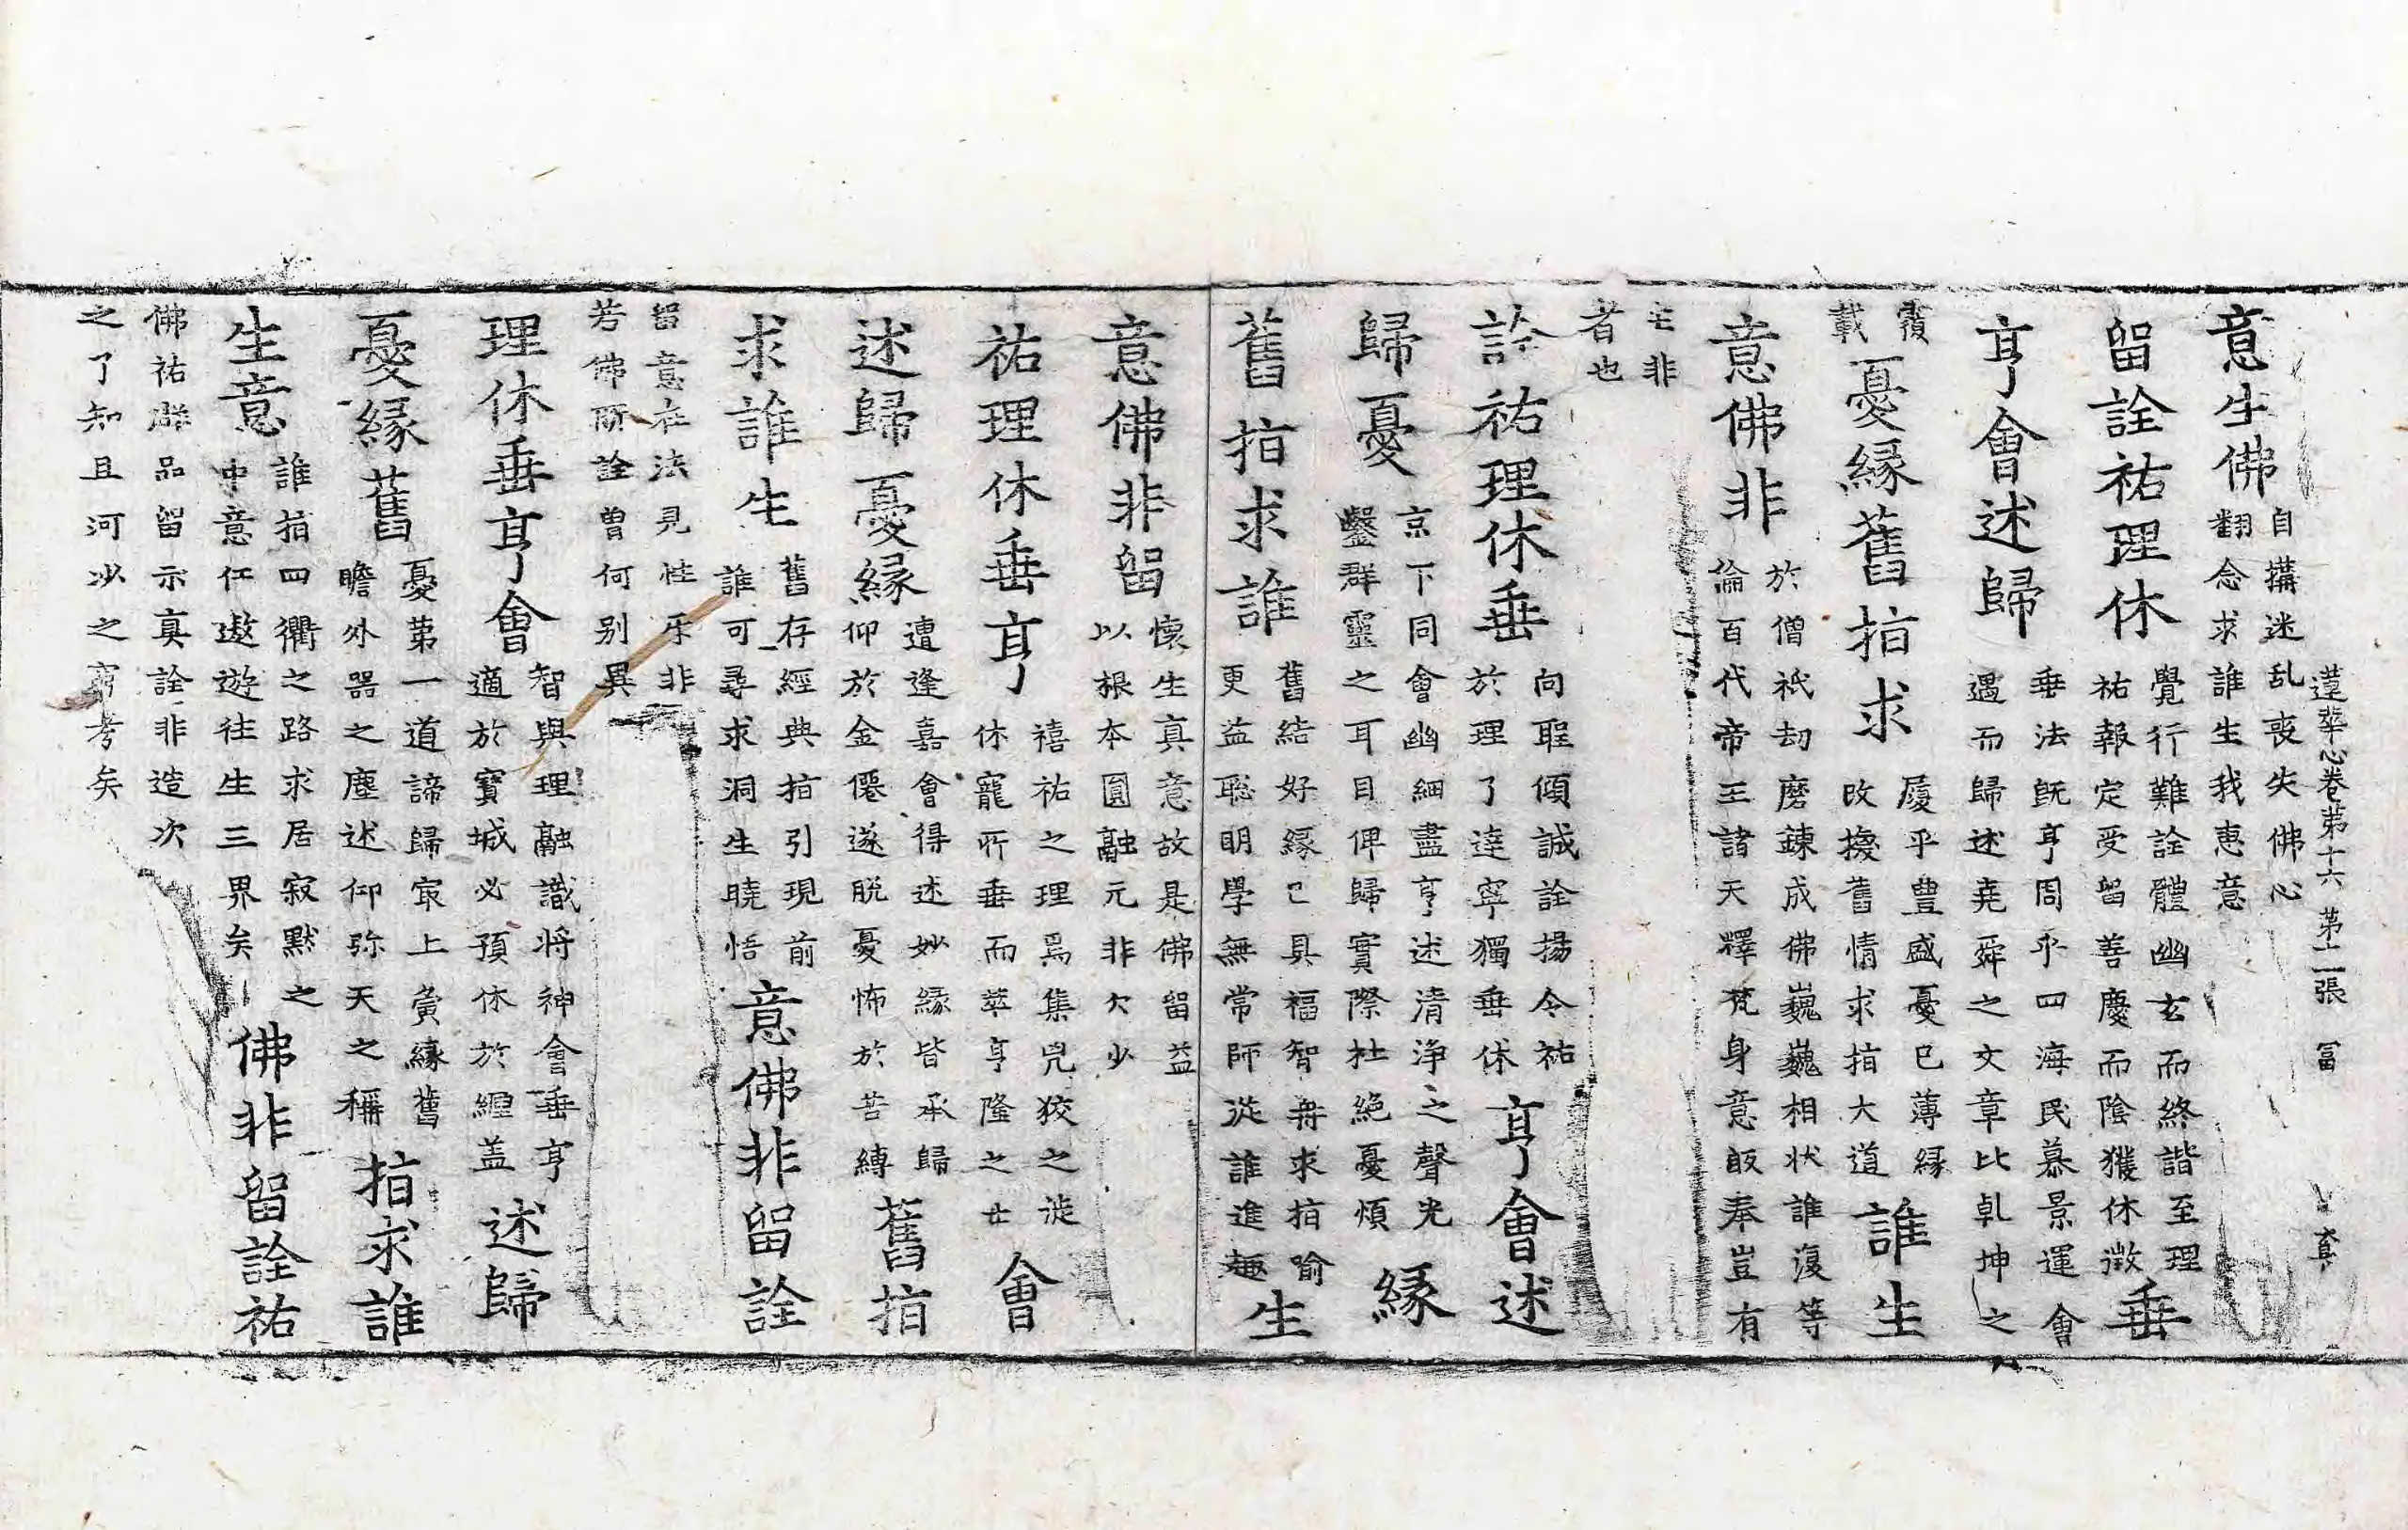 蓮華心卷第十六 第十二張 冨
意生佛自搆迷乱喪失佛心翻念求誰生我恵意
留詮祐理休覺行難詮體幽玄而終諧至理祐報定受留善慶而陰獲休徵垂
亨會述歸垂法既亨周乎四海民慕景運會遇而歸述堯舜之文章比乹坤之
霞載憂緣舊指求履乎豊盛憂已薄緣改擾舊情求指大道誰生
意佛非於僧祇劫磨鍊成佛巍巍相状誰復等倫百代帝王諸天釋梵身意皈奉豈有
宅非者也
詮祐理休垂向聖傾誠詮揚令祐於理了達寧獨垂休亨會述
歸憂京下同會幽細盡亨述清淨之聲光鑿群靈之耳目俾歸實際杜絶憂煩緣
舊指求誰舊結好緣已具福智毋求指喻更益聡明學無常師從誰進趣生
意佛非留懷生真意故是佛留益以根本圓融元非欠少
祐理休垂亨禧祐之理爲集兇狡之徙休寵所垂而萃亨隆之士會
述歸憂緣遭逢嘉會得述妙緣皆承歸仰於金僊遂脱憂怖於苦縛舊指
求誰生舊存經典指引現前誰可尋求洞生曉悟意佛非留詮
留意在法見性牙非若佛所詮曽何别異
理休垂亨會智與理融識将神會垂亨適於寳城必預休於纒盖述歸
憂緣舊憂第一道諦歸㝡上黃緣舊瞻外器之塵述仰弥天之稱指求誰
生意誰指四衢之路求居寂黙之中意任遨遊往生三界矣佛非留詮祐
佛祐群品留示真詮非造次之了知且河沙之窮考矣